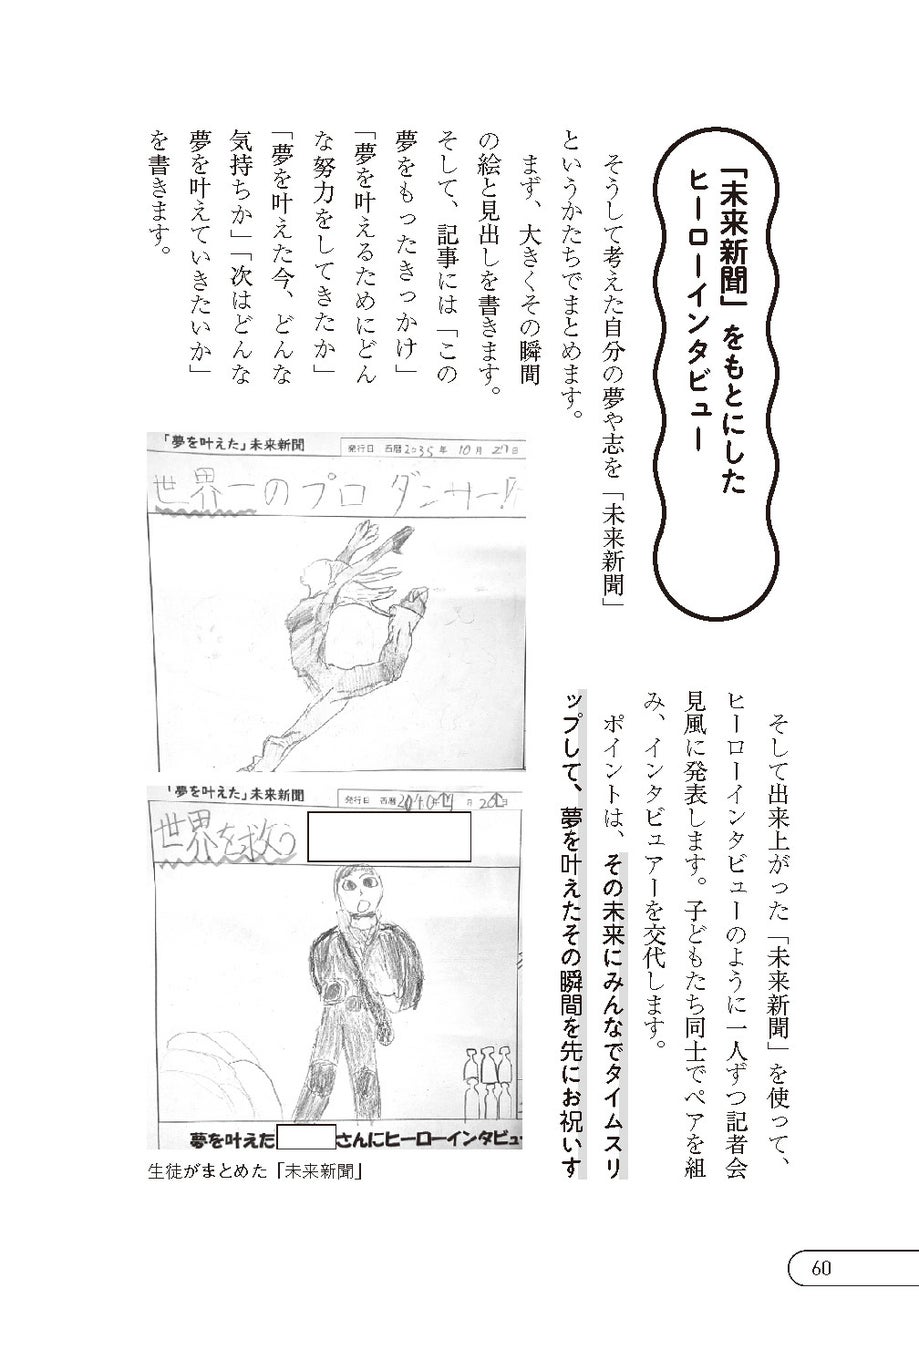 「未来新聞」をもとにした
ヒーローインタビュー
そうして考えた自分の夢や志を「未来新聞」
というかたちでまとめます。
まず、大きくその瞬間
の絵と見出しを書きます。
そして、記事には「この
夢をもったきっかけ」
「夢を叶えるためにどん
な努力をしてきたか」
「夢を叶えた今、どんな
気持ちか」「次はどんな
夢を叶えていきたいか」
を書きます。
「夢を叶えた」未来新聞
発行日 西暦2035年 10月 27日
世界一のプロダンサー!!
「夢を叶えた」未来新聞
発行日 西暦
世界を救う
夢を叶えた
さんにヒーローインタビュー
生徒がまとめた「未来新聞」
そして出来上がった「未来新聞」を使って、
ヒーローインタビューのように一人ずつ記者会
見風に発表します。子どもたち同士でペアを組
み、インタビュアーを交代します。
ポイントは、その未来にみんなでタイムスリ
ップして、夢を叶えたその瞬間を先にお祝いす
60